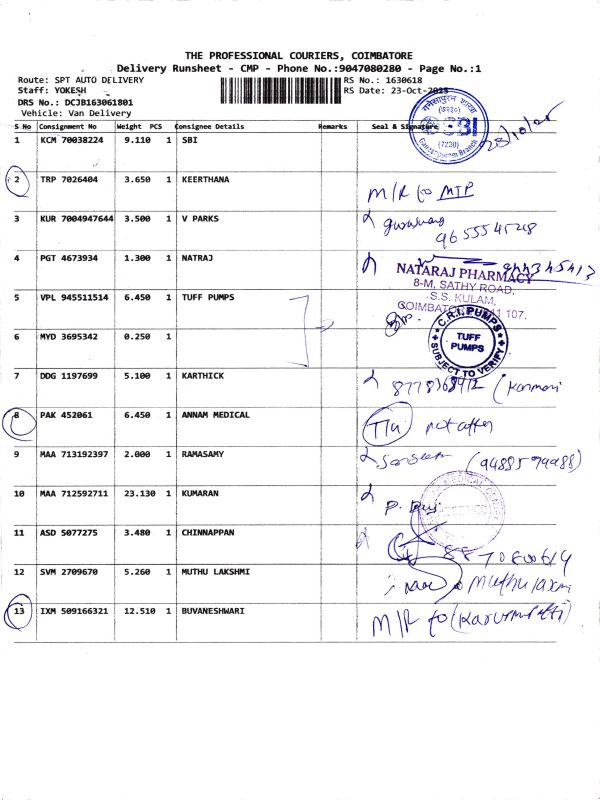 THE PROFESSIONAL COURIERS, COIMBATORE
Delivery Runsheet - CMP - Phone No.:9047080280 - Page No.:1
Route: SPT AUTO DELIVERY RS No.: 1630618
Staff: YOKESH RS Date: 23-Oct-2025
DRS No.: DCJB163061801
Vehicle: Van Delivery
S No Consignment No Weight PCS Consignee Details Remarks Seal & Signature
SBI
(7230)
23/10/25
1 KCM 70038224 9.110 1 SBI
2 TRP 7026404 3.650 1 KEERTHANA M/R to MTP
3 KUR 7004947644 3.500 1 V PARKS
4 PGT 4673934 1.300 1 NATRAJ
NATARAJ PHARMACY
8-M, SATHY ROAD,
S.S. KULAM,
5 VPL 945511514 6.450 1 TUFF PUMPS
C.R.I. PUMPS
TUFF
PUMPS
SUBJECT TO VERIFY
6 MYD 3695342 0.250 1
7 DDG 1197699 5.100 1 KARTHICK
8 PAK 452061 6.450 1 ANNAM MEDICAL
9 MAA 713192397 2.000 1 RAMASAMY
10 MAA 712592711 23.130 1 KUMARAN
11 ASD 5077275 3.480 1 CHINNAPPAN
12 SVM 2709670 5.260 1 MUTHU LAKSHMI
13 IXM 509166321 12.510 1 BUVANESHWARI M/R to